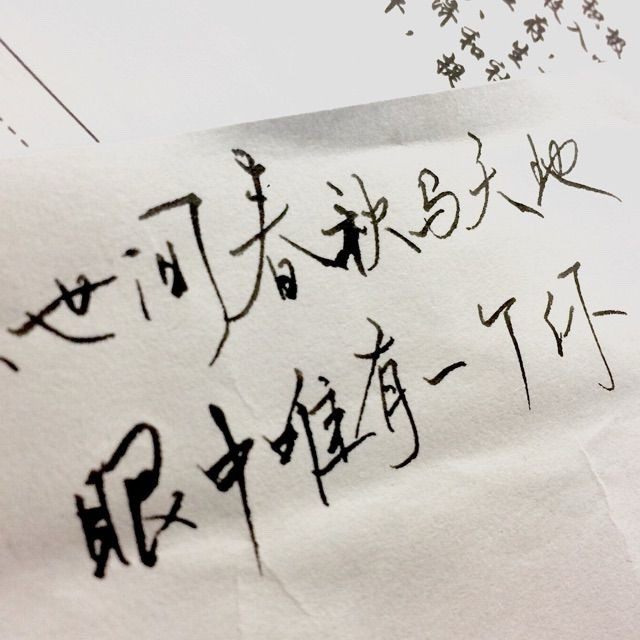 世间春秋与天地
眼中唯有一个你